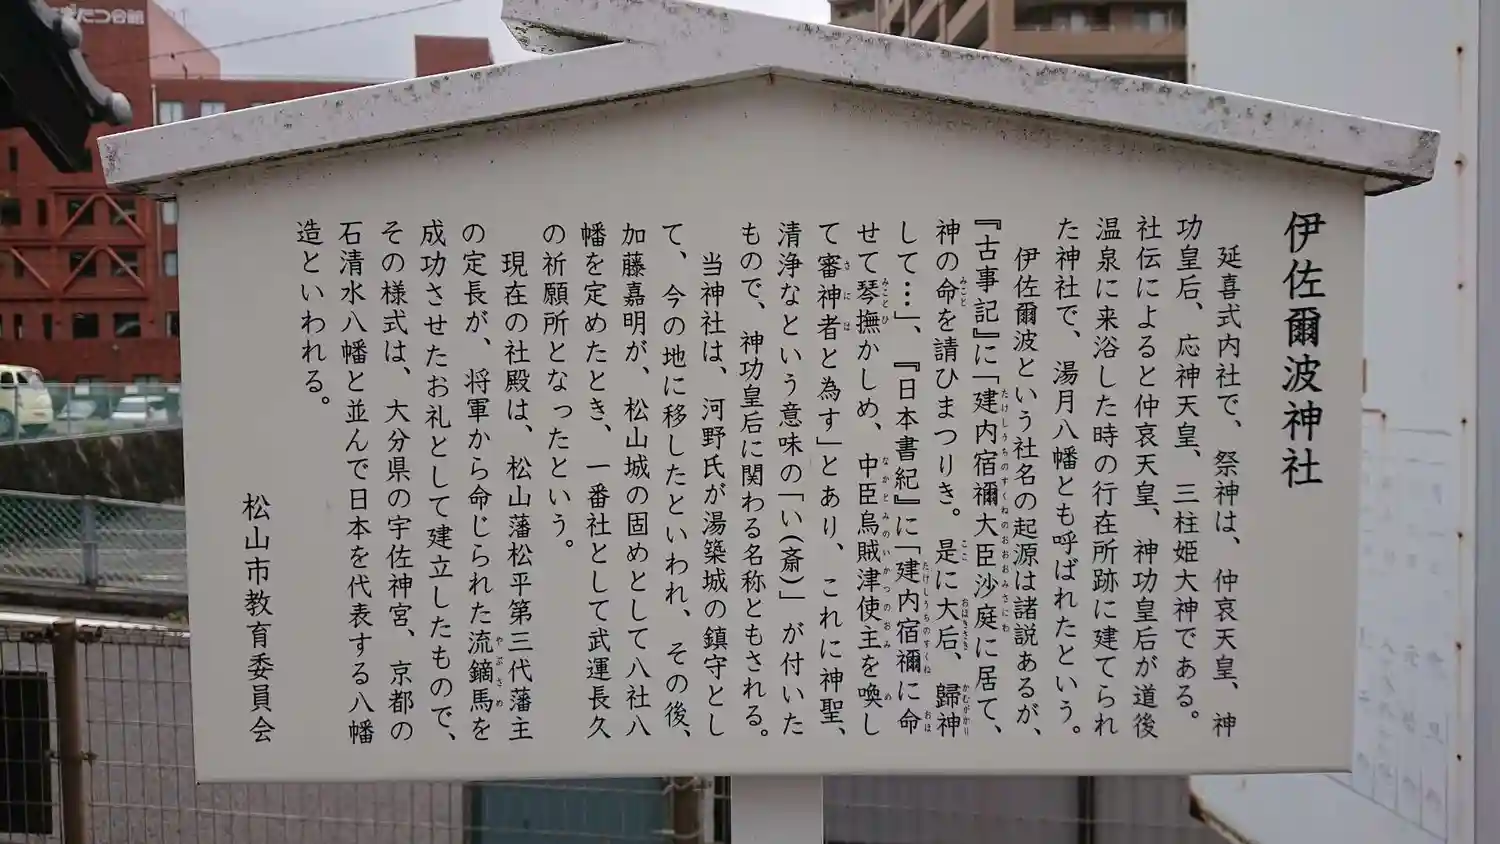 伊佐爾波神社
延喜式内社で、祭神は、仲哀天皇、神
功皇后、応神天皇、三柱姫大神である。
社伝によると仲哀天皇、神功皇后が道後
温泉に来浴した時の行在所跡に建てられ
た神社で、湯月八幡とも呼ばれたという。
伊佐爾波という社名の起源は諸説あるが、
『古事記』に「建内宿禰大臣沙庭に居て、
神の命を請ひまつりき。是に大后、歸神
して…」、『日本書紀』に「建内宿禰に命
せて琴撫かしめ、中臣烏賊津使主を喚し
て審神者と為す」とあり、これに神聖、
清浄なという意味の「い(斎)」が付いた
もので、神功皇后に関わる名称ともされる。
当神社は、河野氏が湯築城の鎮守とし
て、今の地に移したといわれ、その後、
加藤嘉明が、松山城の固めとして八社八
幡を定めたとき、一番社として武運長久
の祈願所となったという。
現在の社殿は、松山藩松平第三代藩主
の定長が、将軍から命じられた流鏑馬を
成功させたお礼として建立したもので、
その様式は、大分県の宇佐神宮、京都の
石清水八幡と並んで日本を代表する八幡
造といわれる。
松山市教育委員会